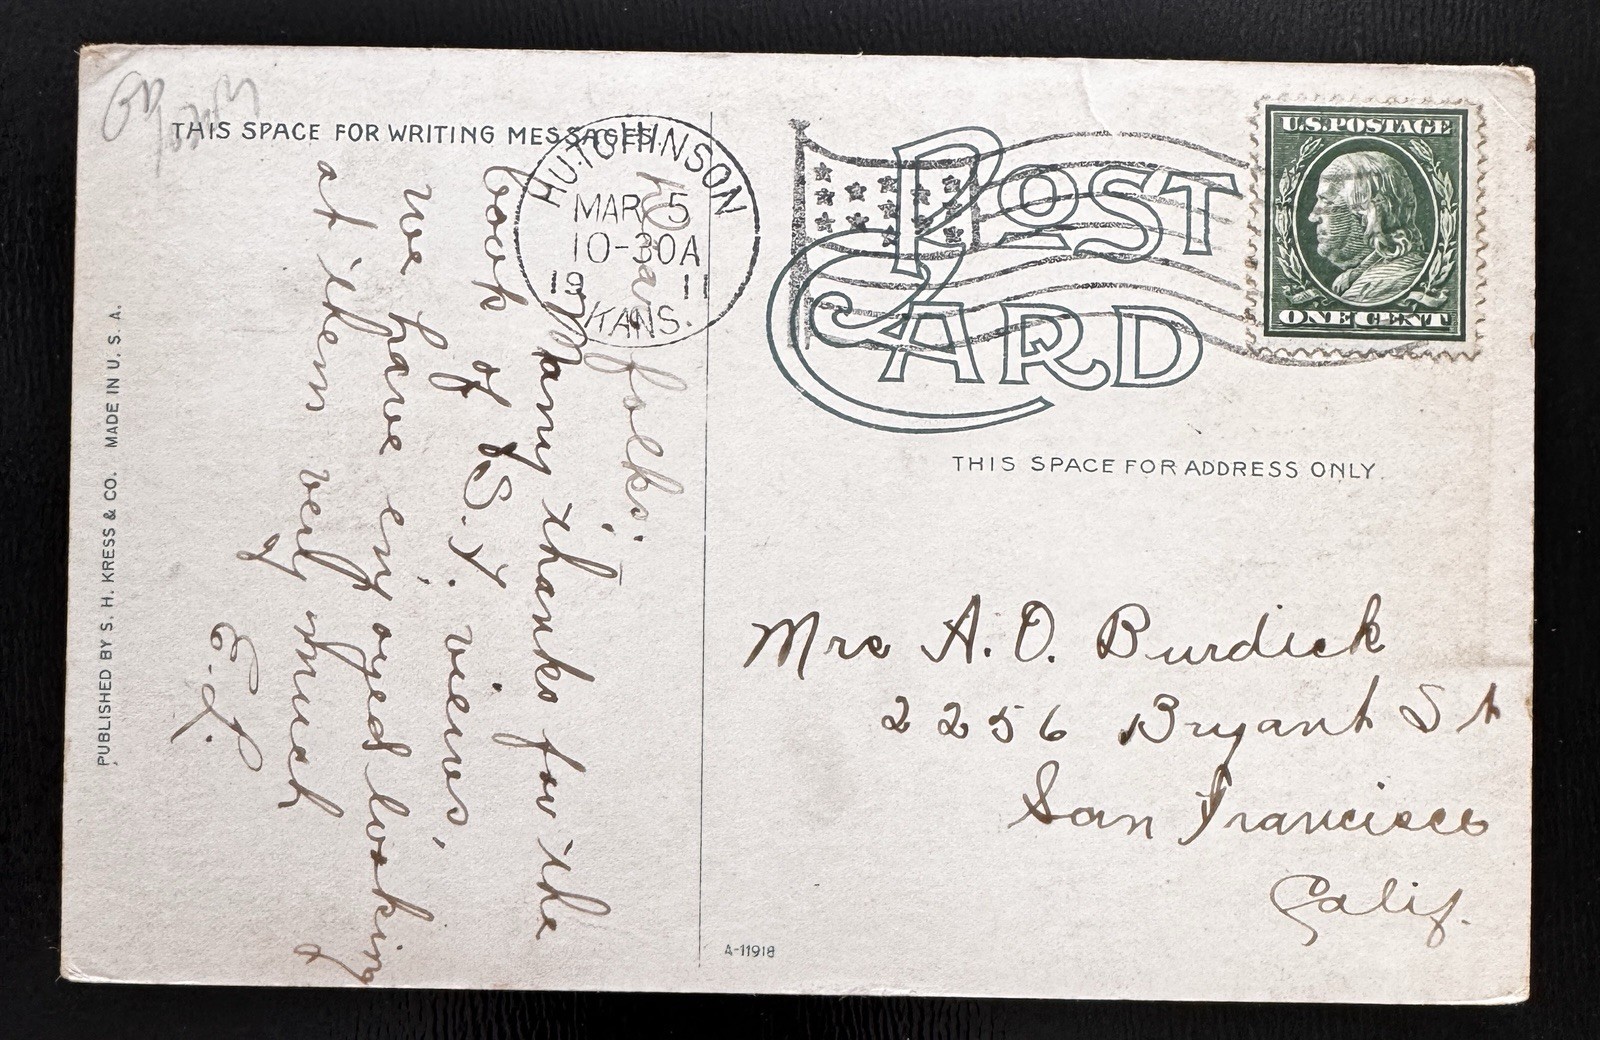 THIS SPACE FOR WRITING MESSAGES.
Dear folks:
Many thanks for the
book of S.F. views,
we have enjoyed looking
at them very much
E.L.
HUTCHINSON
MAR 5
10-30A
1911
KANS.
POST
CARD
U.S. POSTAGE
ONE CENT
THIS SPACE FOR ADDRESS ONLY.
Mrs A. O. Burdick
2256 Bryant St
San Francisco
Calif.
PUBLISHED BY S. H. KRESS & CO. MADE IN U. S. A.
A-11918